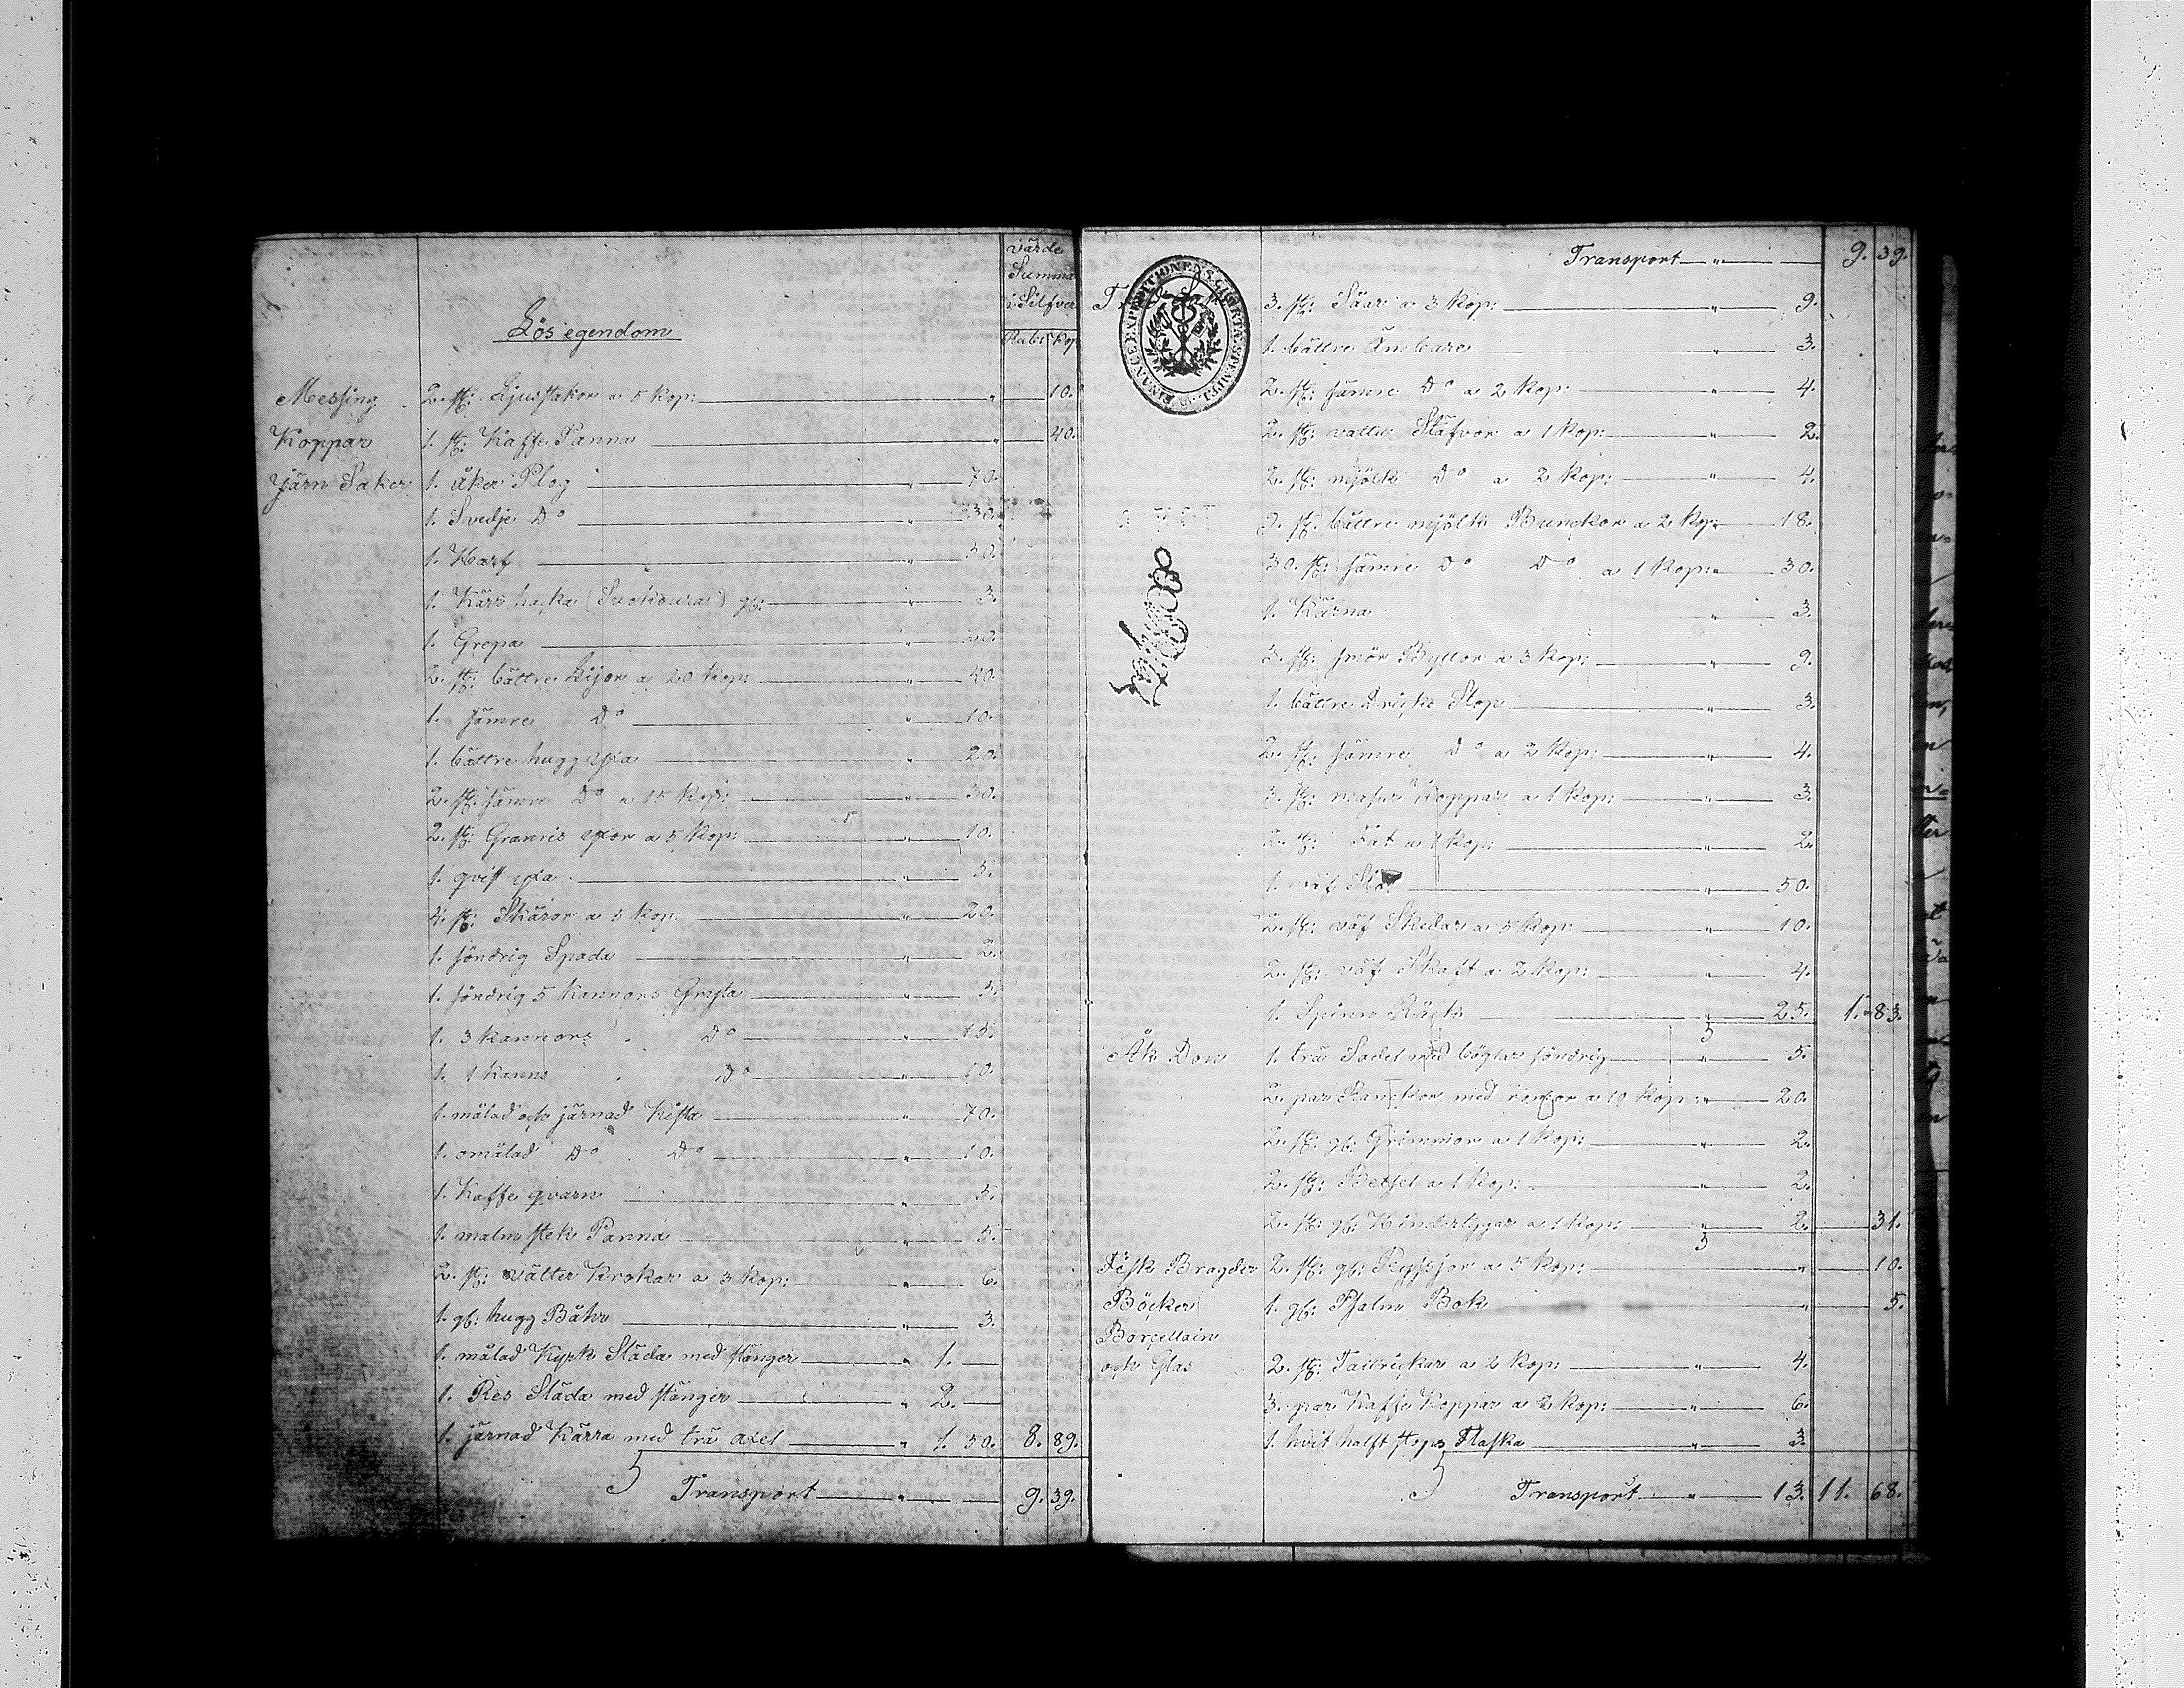 värde
Summa
i Silfver
Lös egendom
Rub: Kop
Messing 2. st: Ljusstakar a 5 Kop: " 10.
Koppar 1. st: Kaffe Panna " 40.
Järn Saker 1. åker Plog " 70.
1. Svedje Do " 30.
1. Harf " 30.
1. Kärr hacka (Suokoura) gl: " 3.
1. Grepa " 20.
2. st: bättre Lijor a 20 Kop: " 40.
1. sämre Do " 10.
1. bättre hugg yxa " 20.
2. st: sämre Do a 15 Kop: " 30.
2. st: Granris yxor a 5 Kop: " 10.
1. qvist yxa " 5.
4. st: Skäror a 5 Kop: " 20.
1. söndrig Spada " 2.
1. söndrig 5 Kannors Gryta " 5.
1. 3 kannors Do " 15.
1. 1 Kanns Do " 10.
1. målad och järnad Kista " 70.
1. omålad Do Do " 10.
1. Kaffe qvarn " 5.
1. malm stek Panna " 5.
2. st: välter Krokar a 3 Kop: " 6.
1. gl: hugg 3.
1. målad Kyrk Släda med stänger " 1. —
1. Res Släda med stänger " 2. —
1. järnad Kärra med trä axel " 1. 50. 8. 89.
Transport " 9. 39.
Transport " 9. 39.
FINANCE EXPEDITIONENS CHARTÆ STEMPEL
3. st: Såar a 3 Kop: " 9.
1. bättre Ämbare " 3.
2. st: sämre Do a 2 Kop: " 4.
2. st: vatten Stäfvor a 1 Kop: " 2.
2. st: mjölk Do a 2 Kop: " 4.
9. st: bättre mjölk Bunckor a 2 Kop: " 18.
30. st: sämre Do Do a 1 Kop: " 30.
1. Kärna " 3.
3. st: smör Byttor a 3 Kop: " 9.
1. bättre Dricks Stop " 3.
2. st: sämre Do a 2 Kop: " 4.
3. st: masur Koppar a 1 Kop: " 3.
2. st: Fat a 1 Kop: " 2.
1. väf Stol " 50.
2. st: väf Skedar a 5 Kop: " 10.
2. st: väf Skaft a 2 Kop: " 4.
1. Spinn Råck " 25. 1. 83.
Åk Don 1. trä Sadel med böglar söndrig " 5.
2. par Ranckor med a 10 Kop: " 20.
2. st: gl: Grimmor a 1 Kop: " 2.
2. st: Betsel a 1 Kop: " 2.
2. st: gl: a 1 Kop: " 2. 31.
Fisk Bragder 2. st: gl: Ryssjor a 5 Kop: " 10.
Böcker 1. gl: Psalm Bok " 5.
Borcellain
och Glas 2. st: Tallrickar a 2 Kop: " 4.
3. par Kaffe Koppar a 2 Kop: " 6.
1. hvit halft stops Flaska " 3.
Transport " 13. 11. 68.